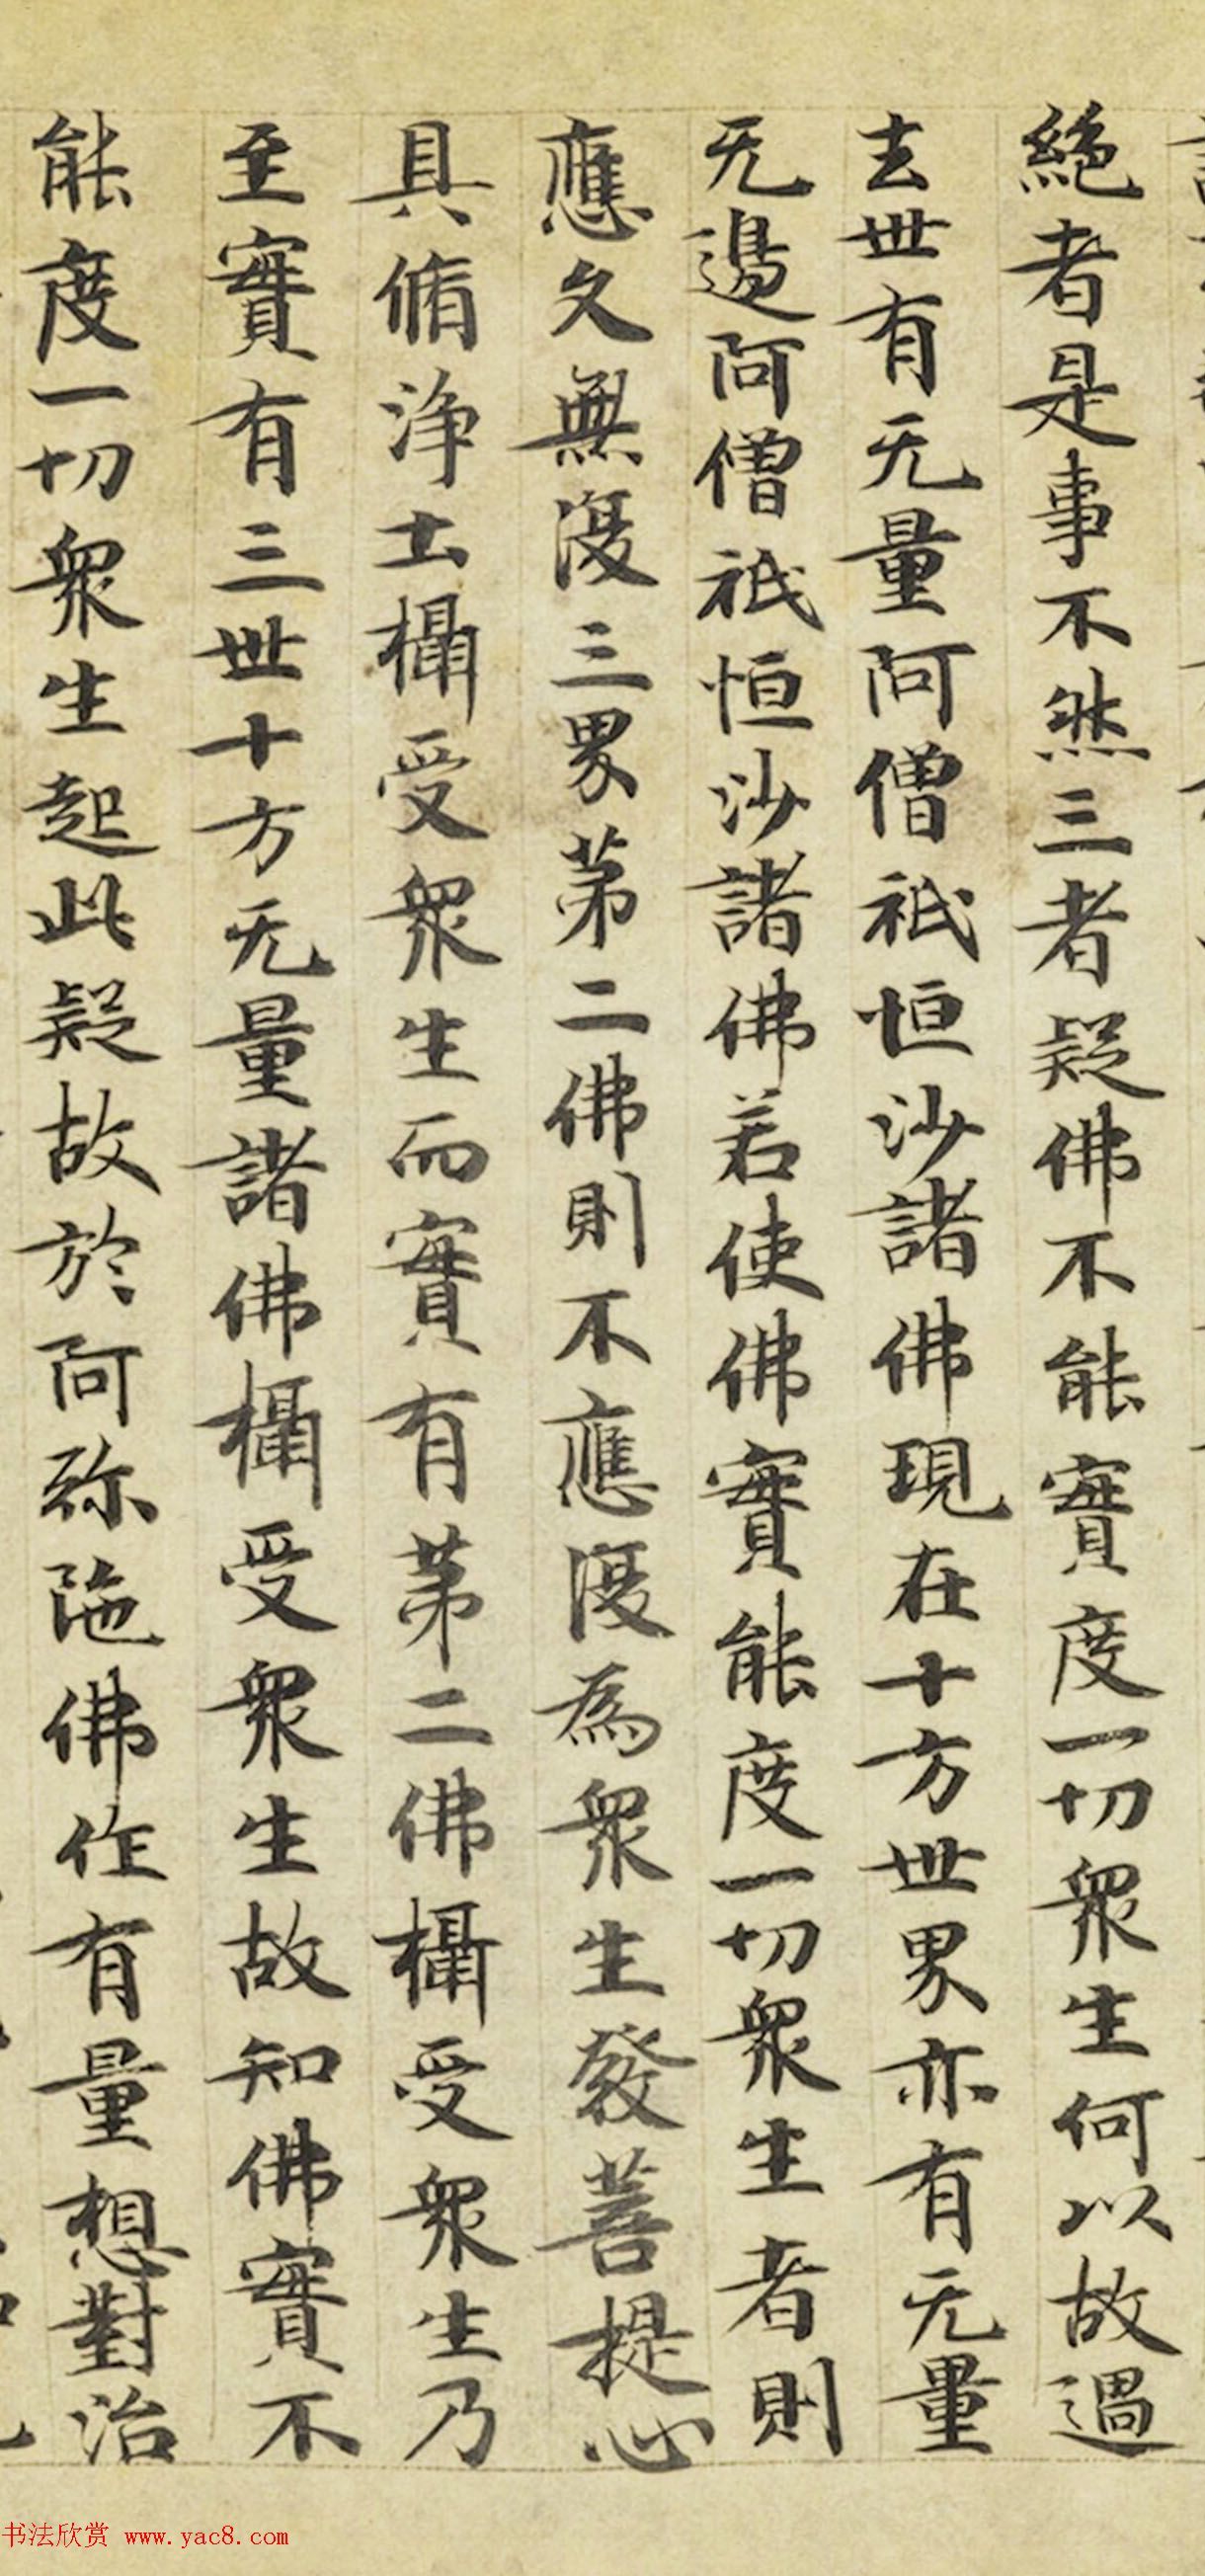 絶者是事不然三者疑佛不能實度一切衆生何以故過
去世有无量阿僧祇恒沙諸佛現在十方世界亦有无量
无邊阿僧祇恒沙諸佛若使佛實能度一切衆生者則
應久無復三界第二佛則不應復為衆生發菩提心
具脩淨土攝受衆生而實有第二佛攝受衆生乃
至實有三世十方无量諸佛攝受衆生故知佛實不
能度一切衆生起此疑故於阿弥陁佛作有量想對治
书法欣赏 www.yac8.com